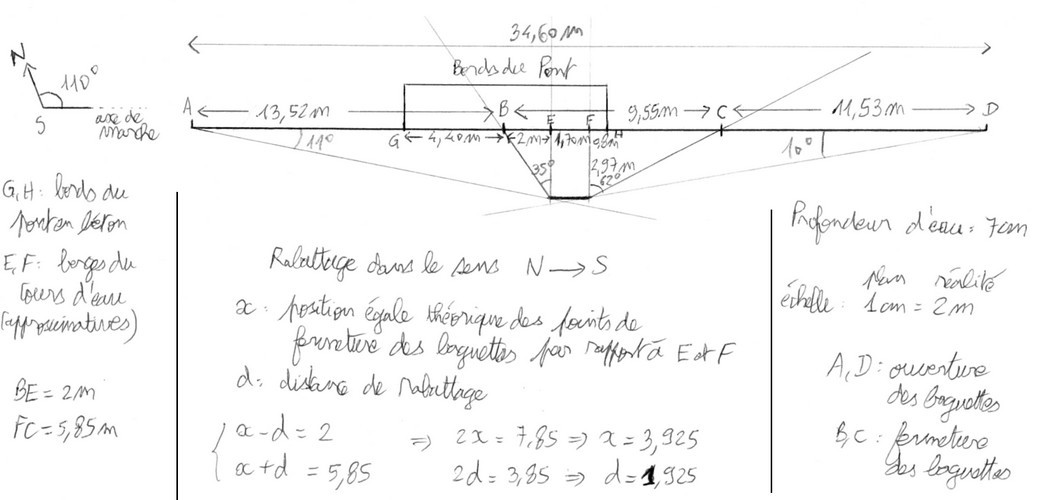 34,60 m
Bords du Pont
N
110°
S
axe de marche
A
13,52 m
B
E
F
9,55 m
C
11,53 m
D
11°
G
4,40 m
2m
1,70 m
0,8m
H
10°
35°
2,97m
62°
G, H : bords du
pont en béton
E, F : berges du
cours d'eau
(approximatives)
BE = 2m
FC = 5,85 m
Rabattage dans le sens N → S
x : position égale théorique des points de
fermeture des baguettes par rapport à E et F
d : distance de rabattage
x - d = 2 ⇒ 2x = 7,85 ⇒ x = 3,925
x + d = 5,85 2d = 3,85 ⇒ d = 1,925
Profondeur d'eau = 7cm
plan réalité
échelle : 1cm = 2m
A, D : ouverture
des baguettes
B, C : fermeture
des baguettes